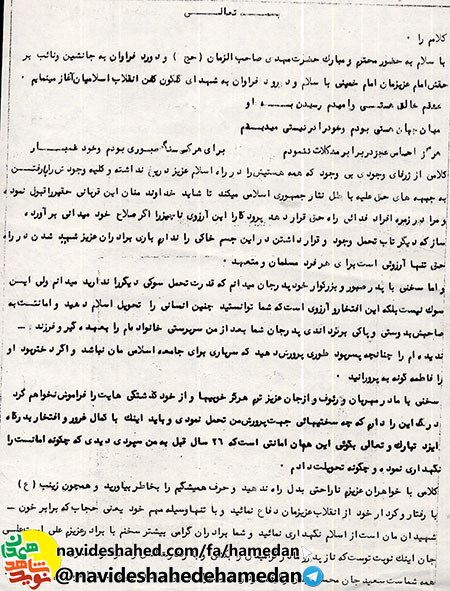 بسمه تعالی
کلامم را .
با سلام به حضور محترم و مبارک حضرت مهدی صاحب الزمان (عج) و درود فراوان به جانشین ونائب بر
حقش امام عزیزمان امام خمینی با سلام و درود فراوان به شهدای گلگون کفن انقلاب اسلامیمان آغاز مینمایم .
عشقم خالق هستی وامیدم رسیدن به او
میان جهان هستی بودم وخود را در نیستی میدیدم
هرگز احساس عجز در برابر مشکلات ننمودم برای هرکس سنگ صبوری بودم وخود غمبار
کلامی از ژرفای وجودی بی وجود که همه هستیش را در راه اسلام عزیز دریغ نداشته و کلیه وجودش را با رفتن
به جبهه های حق علیه باطل نثار جمهوری اسلامی میکند تا شاید خداوند منان این قربانی حقیر را قبول نموده
و مرا در زمره افراد فدائی راه حق قرار دهد پروردگارا این آرزوی ناچیز را اگر صلاح خود میدانی برآورده
ساز که دیگر تاب تحمل وجود و قرار داشتن در این جسم خاکی را ندارم باری برادران عزیز شهید شدن در راه
حق تنها آرزوئی است برای هر فرد مسلمان و متعهد .
و اما سخنی با پدر صبور و بزرگوار خود پدرجان میدانم که قدرت تحمل سوگی دیگر را ندارید میدانم ولی این
سوگ نیست بلکه این افتخار و آرزوی است که شما توانستید چنین انسانی را تحویل اسلام دهید و امانت به
صاحبش بدرستی و پاکی برگرداندی پدرجان شما بعد از من سرپرستی خانواده ام را بعهده گیر و فرزند
ندیده ام را چنانچه پسر بود طوری پرورش دهید که سرباری برای جامعه اسلامی مان نباشد و اگر دختر بود او
را فاطمه گونه به پرورانید .
سخنی با مادر مهربان و رئوف و از جان عزیز ترم هرگز خوبیها و از خود گذشتگی هایت را فراموش نخواهم کرد
درک این را دارم که چه سختیهائی جهت پرورش من تحمل نمودی و باید اینک با کمال غرور و افتخار بدرگاه
ایزد تبارک و تعالی بگوئی این همان امانتی است که ۲۶ سال قبل به من سپردی دیدی که چگونه امانت را
نگهداری نموده و چگونه تحویلت دادم .
کلامی با خواهران عزیزم ناراحتی بدل راه ندهید و حرف همیشگیم را بخاطر بیاورید و همچون زینب (ع)
با رفتار و کردار خود از انقلاب عزیزمان دفاع نمائید و با تنها وسیله مهم خود یعنی حجاب که برابر خون
شهیدان مان است از اسلام نگهداری نمائید و شما برادران گرامی بیشتر سخنم با برادر عزیزم علی است علی
جان اینک نوبت توست که
همه شماست سعید جان
navideshahed.com/fa/hamedan
@navideshahedehamedan
نوید شاهد
همدان